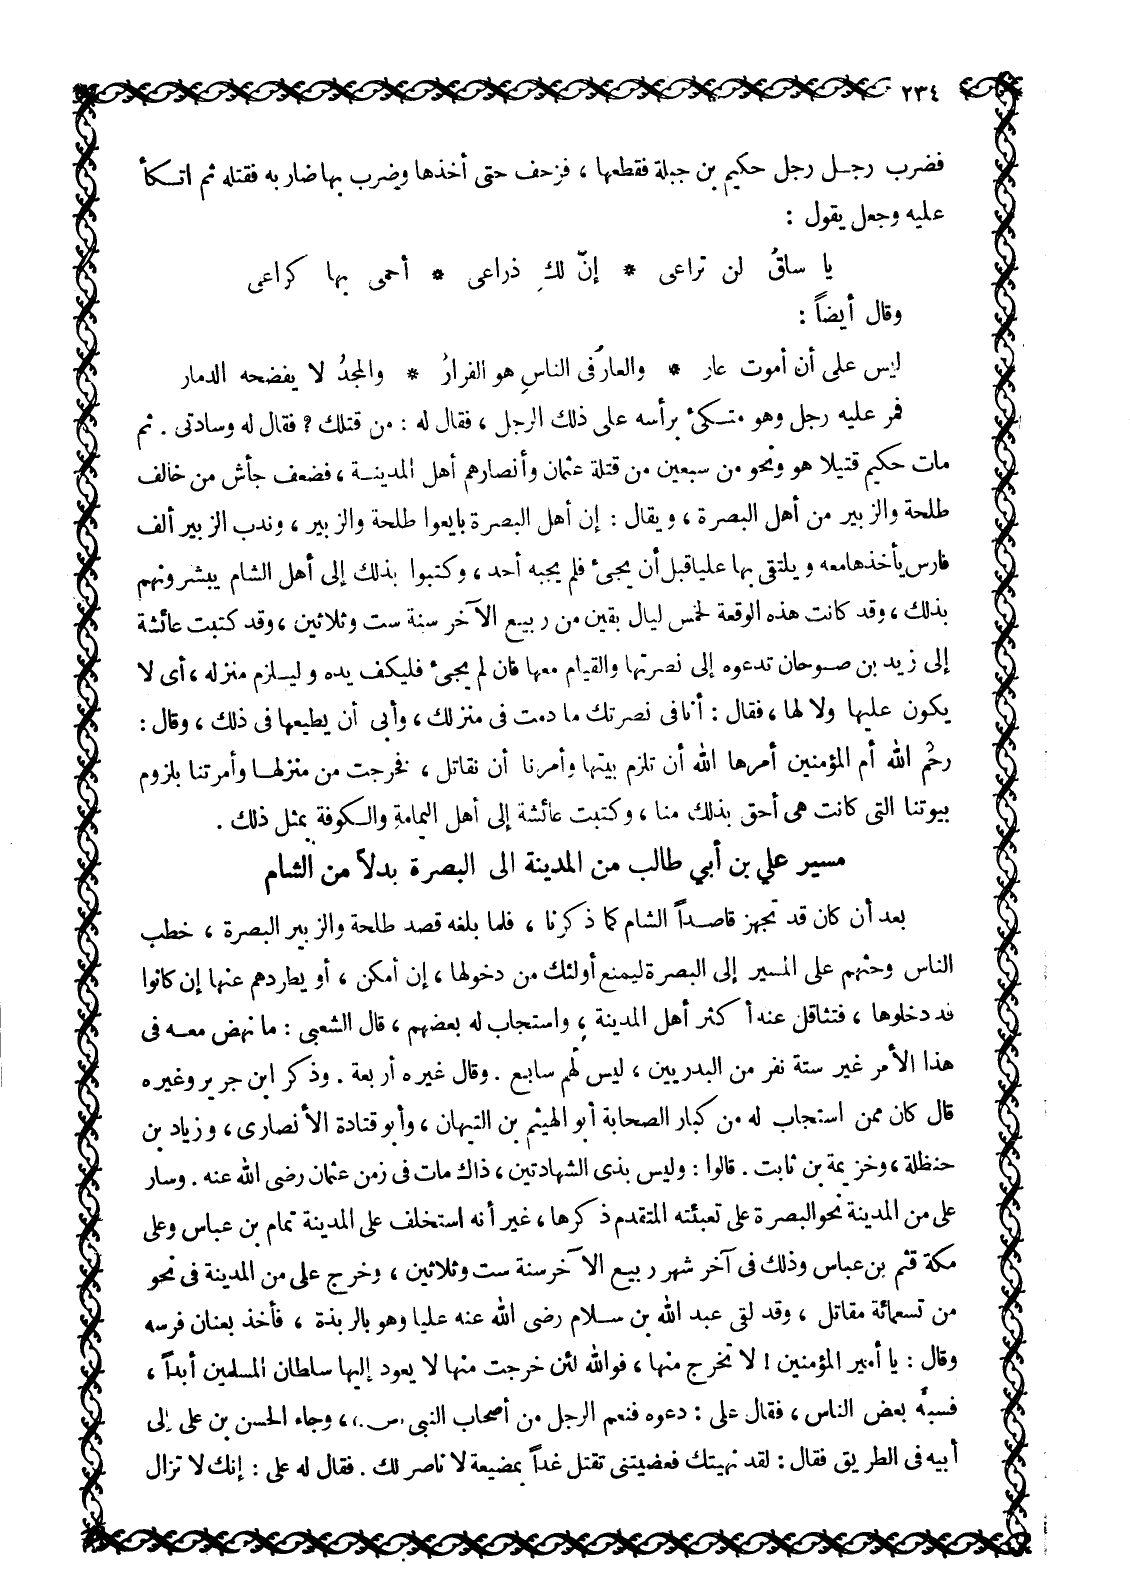 ٢٣٤
فضرب رجـل رجل حكيم بن جبلة فقطعها ، فزحف حتى أخذها وضرب بها ضاربه فقتله ثم اتـكأ
عليه وجعل يقول :
يا ساقُ لن تراعى * إنّ لكِ ذراعى * أحمى بها كراعى
وقال أيضاً :
ليس على أن أموت عار * والعارُ فى الناسِ هو الفرارُ * والمجدُ لا يفضحه الدمار
فمر عليه رجل وهو متـكئ برأسه على ذلك الرجل ، فقال له : من قتلك ؟ فقال له وسادتى . ثم
مات حكيم قتيلا هو ونحو من سبعين من قتلة عثمان وأنصارهم أهل المدينـة ، فضعف جأش من خالف
طلحة والزبير من أهل البصرة ، ويقال : إن أهل البصرة بايعوا طلحة والزبير ، وندب الزبير ألف
فارس يأخذها معه ويلتقى بها عليا قبل أن يجىء فلم يجبه أحد ، وكتبوا بذلك إلى أهل الشام يبشرونهم
بذلك ، وقد كانت هذه الوقعة لخمس ليال بقين من ربيع الآخر سنة ست وثلاثين ، وقد كتبت عائشة
إلى زيد بن صـوحان تدعوه إلى نصرتها والقيام معها فان لم يجىء فليكف يده وليـلزم منزله ، أى لا
يكون عليها ولا لها ، فقال : أنا فى نصرتك ما دمت فى منزلك ، وأبى أن يطيعها فى ذلك ، وقال :
رحم الله أم المؤمنين أمرها الله أن تلزم بيتها وأمرنا أن نقاتل ، فخرجت من منزلهـا وأمرتنا بلزوم
بيوتنا التى كانت هى أحق بذلك منا ، وكتبت عائشة إلى أهل اليمامة والـكوفة بمثل ذلك .
مسير علي بن أبي طالب من المدينة الى البصرة بدلاً من الشام
بعد أن كان قد تجهز قاصـداً الشام كما ذكرنا ، فلما بلغه قصد طلحة والزبير البصرة ، خطب
الناس وحثهم على المسير إلى البصرة ليمنع أولئك من دخولها ، إن أمكن ، أو يطردهم عنها إن كانوا
قد دخلوها ، فتثاقل عنه أكثر أهل المدينة ، واستجاب له بعضهم ، قال الشعبى : ما نهض معـه فى
هذا الأمر غير ستة نفر من البدريين ، ليس لهم سابع . وقال غيره أربعة . وذكر ابن جرير وغيره
قال كان ممن استجاب له من كبار الصحابة أبو الهيثم بن التيهان ، وأبو قتادة الأنصارى ، وزياد بن
حنظلة ، وخزيمة بن ثابت . قالوا : وليس بذى الشهادتين ، ذاك مات فى زمن عثمان رضى الله عنه . وسار
على من المدينة نحو البصرة على تعبئته المتقدم ذكرها ، غير أنه استخلف على المدينة تمام بن عباس وعلى
مكة قثم بن عباس وذلك فى آخر شهر ربيع الآخر سنة ست وثلاثين ، وخرج على من المدينة فى نحو
من تسعمائة مقاتل ، وقد لقى عبد الله بن سـلام رضى الله عنه عليا وهو بالربذة ، فأخذ بعنان فرسه
وقال : يا أمير المؤمنين ! لا تخرج منها ، فوالله لئن خرجت منها لا يعود إليها سلطان المسلمين أبداً ،
فسبَّه بعض الناس ، فقال على : دعوه فنعم الرجل من أصحاب النبى (س.) ، وجاء الحسن بن على إلى
أبيه فى الطريق فقال : لقد نهيتك فعصيتنى تقتل غداً بمضيعة لا ناصر لك . فقال له على : إنك لا تزال